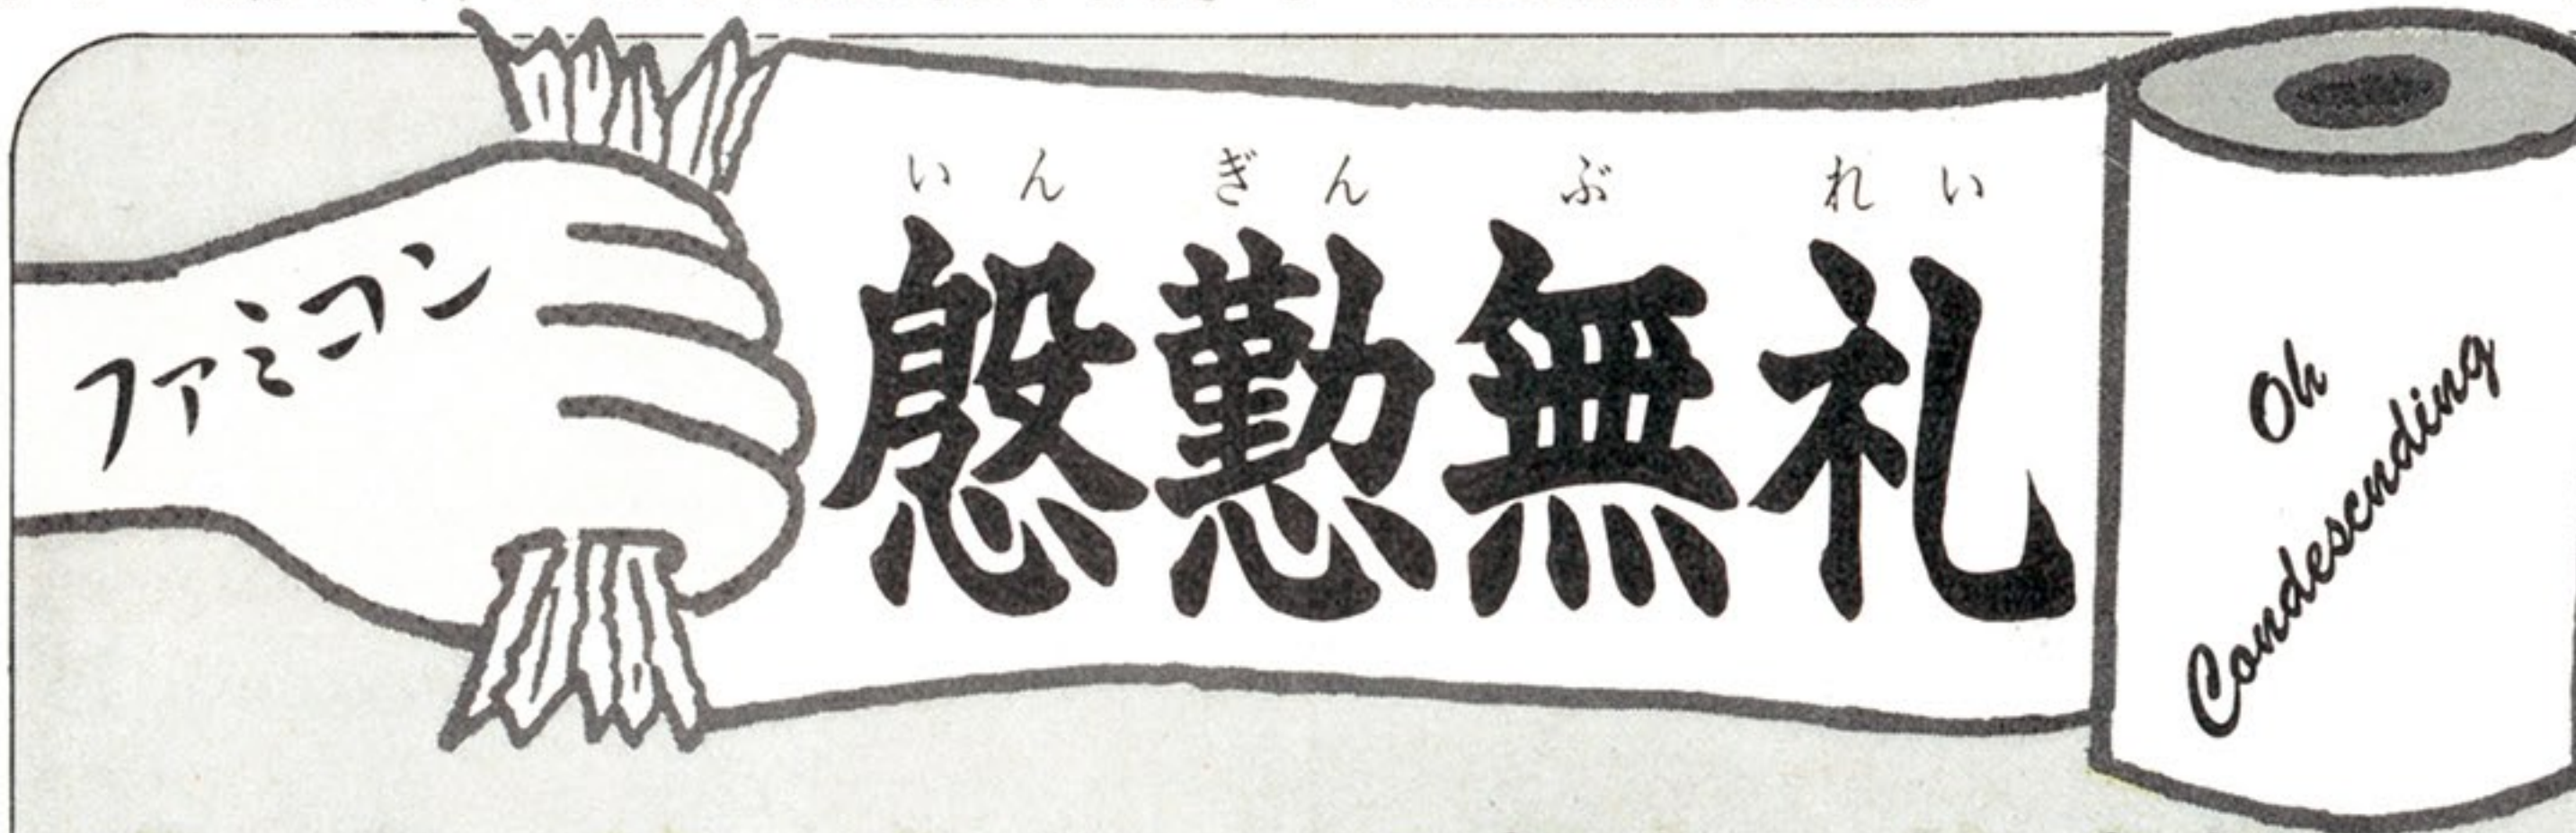 ファミコン
いんぎんぶれい
慇懃無礼
Oh
Condescending